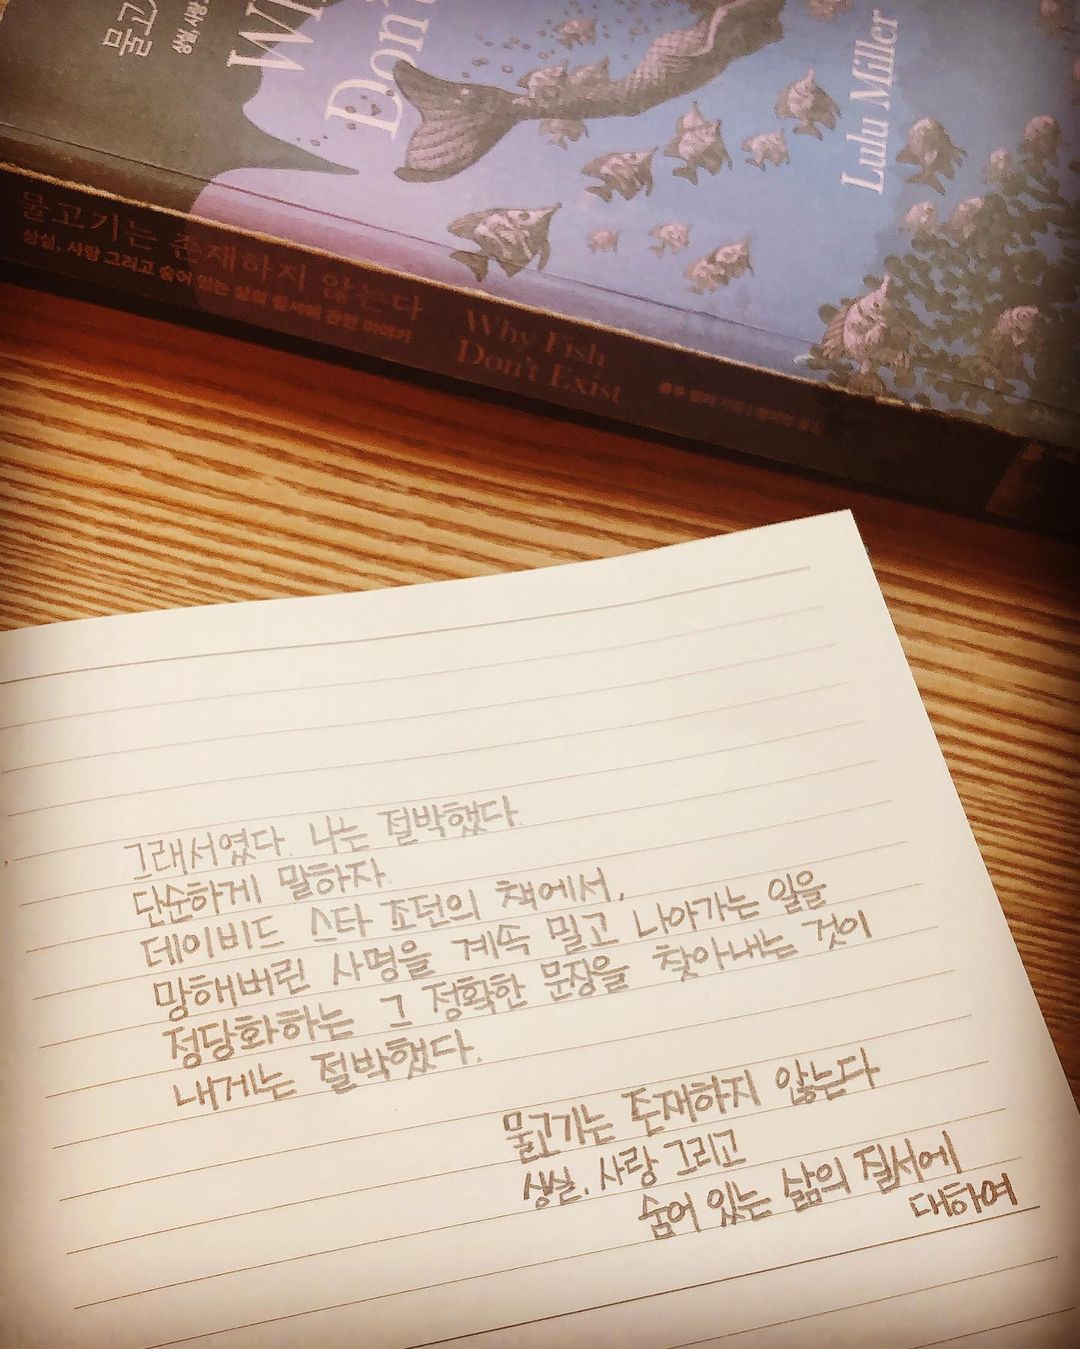 물고
상실, 사랑
Why
Don't
Lulu Miller
물고기는 존재하지 않는다
상실, 사랑 그리고 숨어 있는 삶의 질서에 관한 이야기
Why Fish
Don't Exist
그래서였다. 나는 절박했다.
단순하게 말하자.
데이비드 스타 조던의 책에서,
망해버린 사명을 계속 밀고 나아가는 일을
정당화하는 그 정확한 문장을 찾아내는 것이
내게는 절박했다.
물고기는 존재하지 않는다
상실, 사랑 그리고
숨어 있는 삶의 질서에
대하여